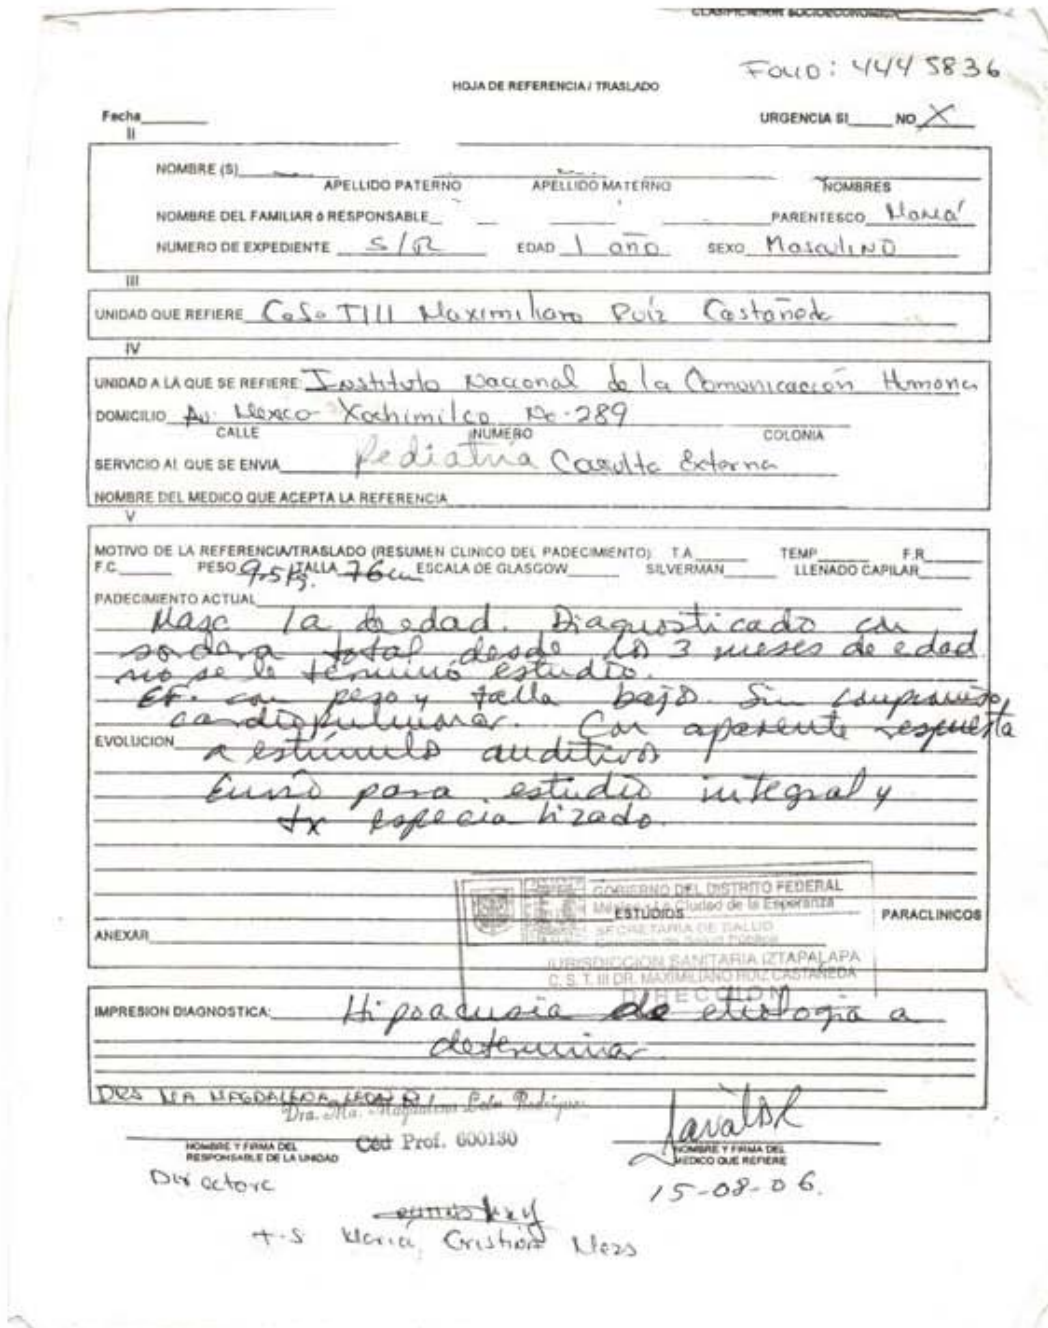 CLASIFICACION SOCIOECONOMICA
FOLIO: 444 5836
HOJA DE REFERENCIA / TRASLADO
Fecha URGENCIA SI NO X
II
NOMBRE (S)
APELLIDO PATERNO APELLIDO MATERNO NOMBRES
NOMBRE DEL FAMILIAR ó RESPONSABLE PARENTESCO Mamá
NUMERO DE EXPEDIENTE S/R EDAD 1 año SEXO Masculino
III
UNIDAD QUE REFIERE C.S. TIII Maximiliano Ruiz Castañeda
IV
UNIDAD A LA QUE SE REFIERE: Instituto Nacional de la Comunicación Humana
DOMICILIO Av. Mexico-Xochimilco No. 289
CALLE NUMERO COLONIA
SERVICIO AL QUE SE ENVIA Pediatria Consulta Externa
NOMBRE DEL MEDICO QUE ACEPTA LA REFERENCIA
V
MOTIVO DE LA REFERENCIA/TRASLADO (RESUMEN CLINICO DEL PADECIMIENTO) T.A TEMP F.R.
F.C. PESO 9.5 kg. TALLA 76cm ESCALA DE GLASGOW SILVERMAN LLENADO CAPILAR
PADECIMIENTO ACTUAL
Masc 1a de edad. Diagnosticado con
sordera total desde los 3 meses de edad
no se le terminó estudio.
EF. con peso y talla bajo. Sin compromiso
cardiopulmonar. Con aparente respuesta
EVOLUCION a estímulo auditivos
Envío para estudio integral y
tx especializado.
GOBIERNO DEL DISTRITO FEDERAL
México - La Ciudad de la Esperanza
ESTUDIOS PARACLINICOS
SECRETARIA DE SALUD
ANEXAR
JURISDICCION SANITARIA IZTAPALAPA
C. S. T. III DR. MAXIMILIANO RUIZ CASTAÑEDA
DIRECCION
IMPRESION DIAGNOSTICA: Hipoacusia de etiologia a
determinar
DRA MA MAGDALENA LEON R.
Dra. Ma. Magdalena León Rodríguez
NOMBRE Y FIRMA DEL Céd Prof. 600130 NOMBRE Y FIRMA DEL
RESPONSABLE DE LA UNIDAD MEDICO QUE REFIERE
Directora 15-08-06.
T.S Maria Cristina